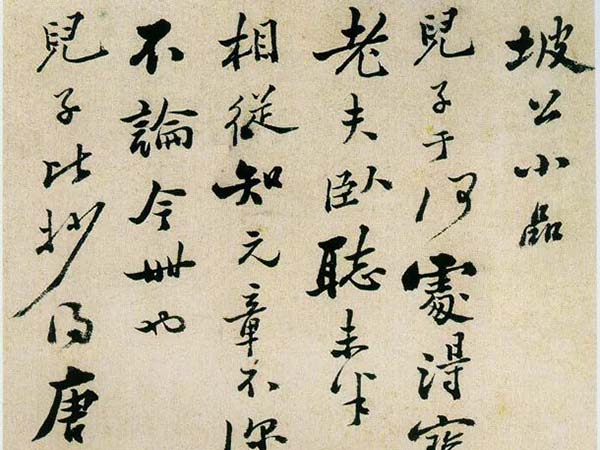 坡公小品
兒子于何處得寳
老夫臥聽未半
相從知元章不深
不論今世也
兒子比抄得唐